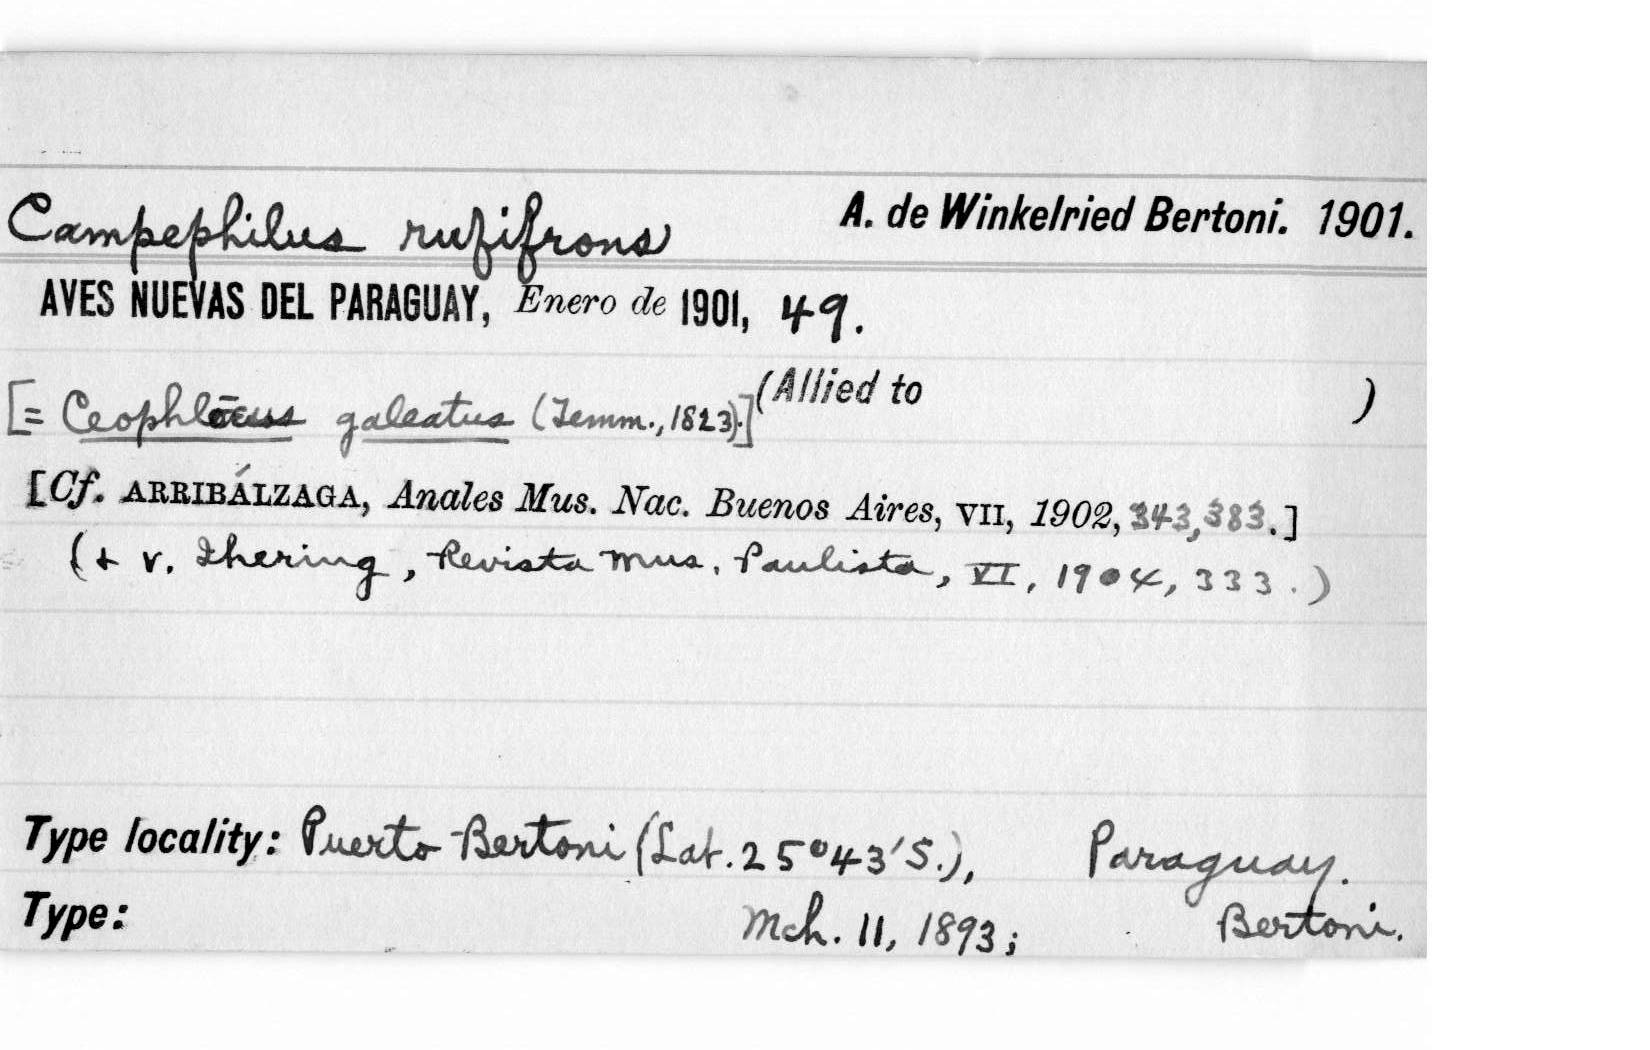 Campephilus rufifrons A. de Winkelried Bertoni. 1901.
AVES NUEVAS DEL PARAGUAY, Enero de 1901, 49.
[= Ceophlœus galeatus (Temm., 1823).] (Allied to )
[Cf. ARRIBÁLZAGA, Anales Mus. Nac. Buenos Aires, VII, 1902, 343, 383.]
(+ v. Ihering, Revista Mus. Paulista, VI, 1904, 333.)
Type locality: Puerto Bertoni (Lat. 25°43'S.), Paraguay.
Type: Mch. 11, 1893; Bertoni.